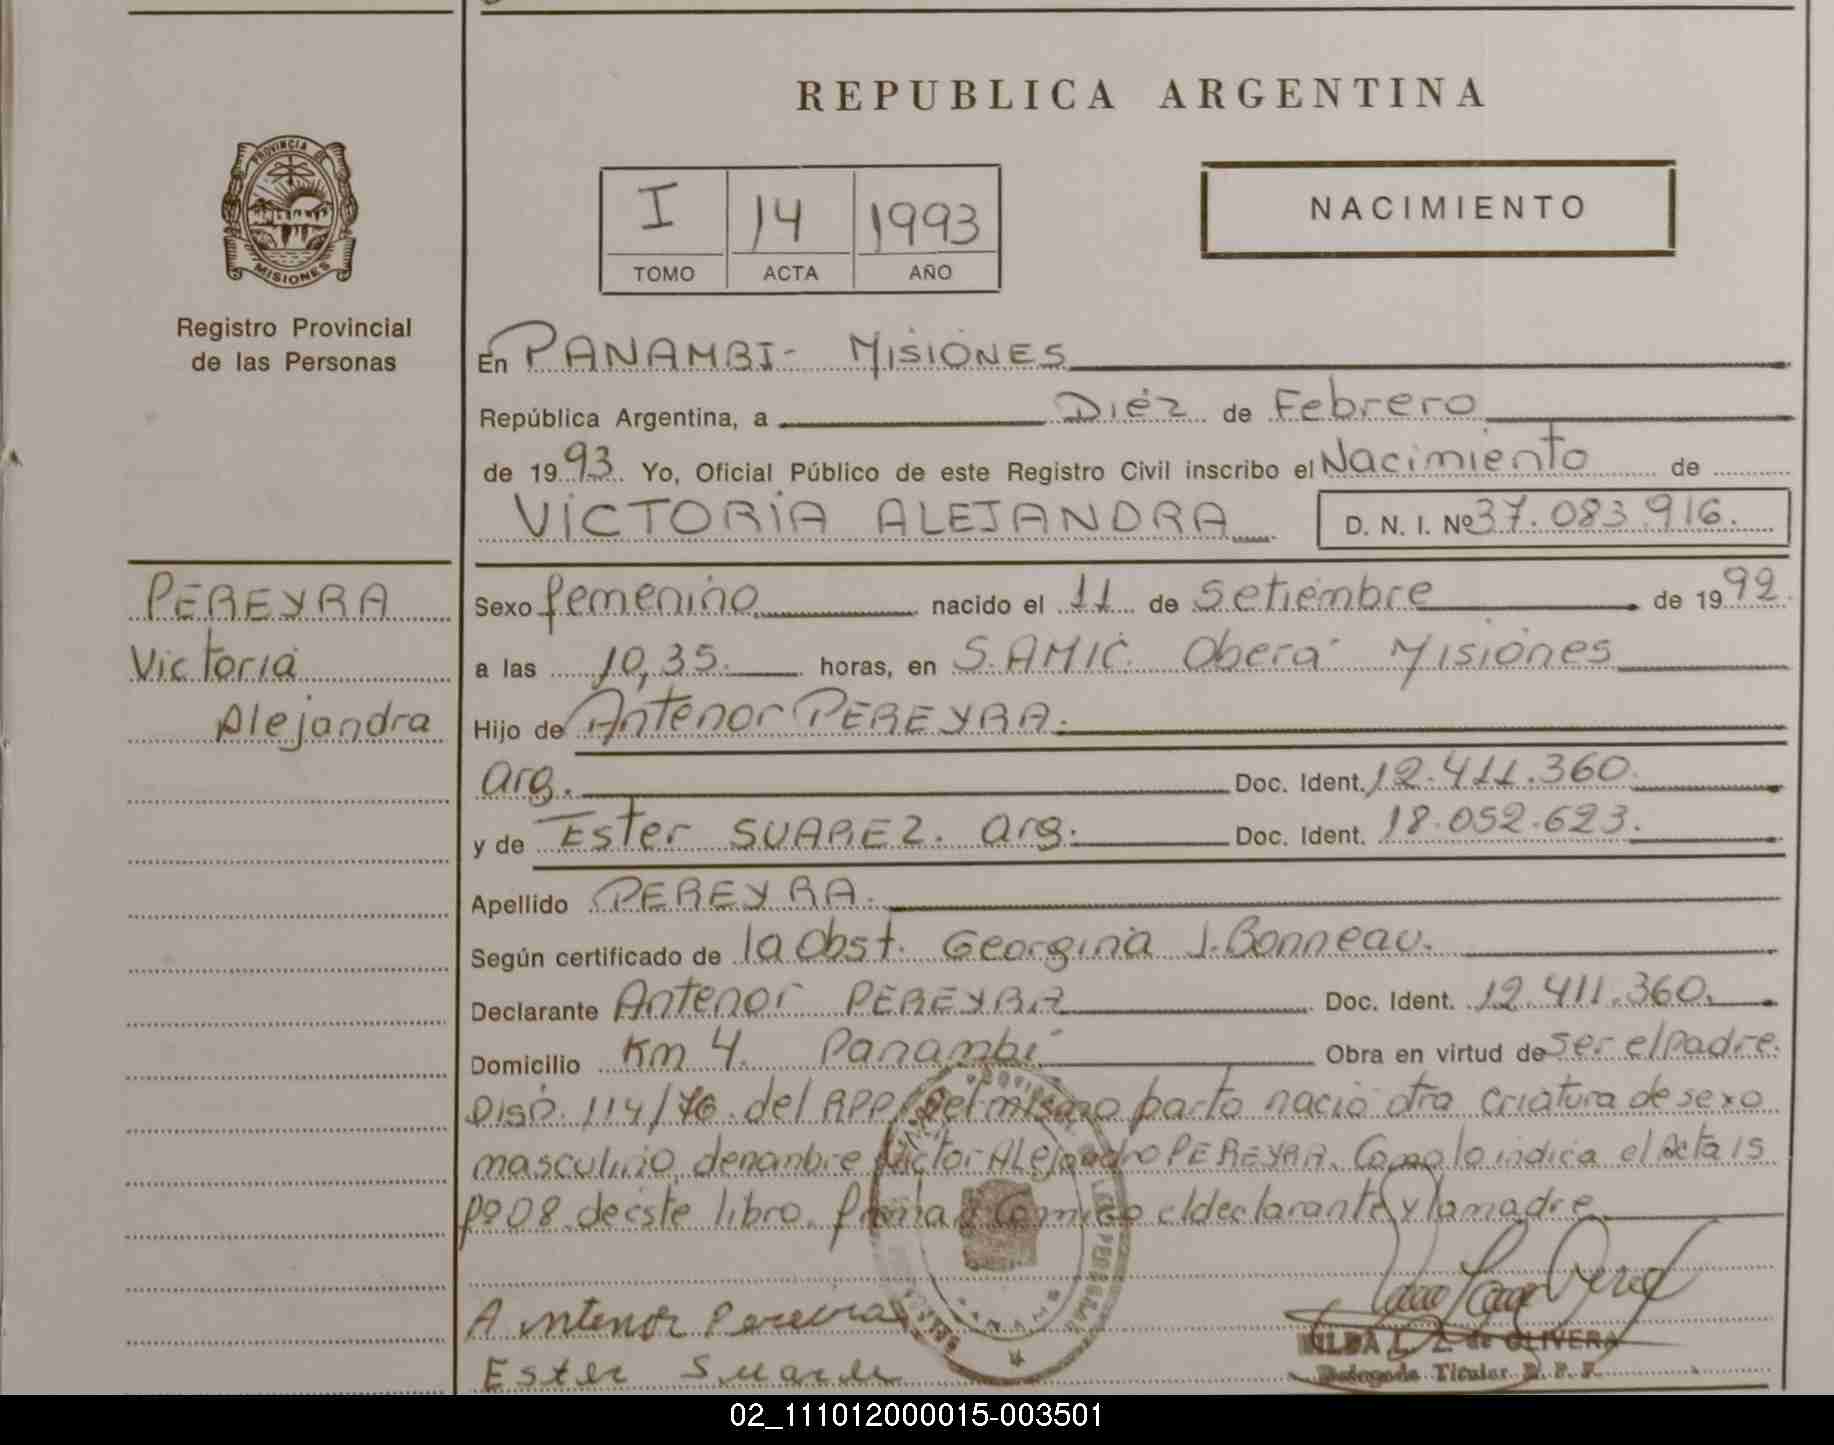 REPUBLICA ARGENTINA
PROVINCIA DE
MISIONES
Registro Provincial
de las Personas
I 14 1993
TOMO ACTA AÑO
NACIMIENTO
En PANAMBI- MISIONES
República Argentina, a Diez de Febrero
de 1993. Yo, Oficial Público de este Registro Civil inscribo el Nacimiento de
VICTORIA ALEJANDRA D. N. I. Nº 37.083.916.
PEREYRA
Victoria
Alejandra
Sexo femenino nacido el 11 de Setiembre de 1992.
a las 10,35. horas, en S.AMIC. Oberá Misiones
Hijo de Antenor PEREYRA.
arg. Doc. Ident. 12.411.360.
y de Ester SUAREZ. arg. Doc. Ident. 18.052.623.
Apellido PEREYRA.
Según certificado de la Obst. Georgina J. Bonneau.
Declarante Antenor PEREYRA Doc. Ident. 12.411.360.
Domicilio Km 4. Panambí Obra en virtud de ser el Padre.
Disp. 114/76. del RPP. Del mismo parto nació otra criatura de sexo
masculino, denombre Victor Alejandro PEREYRA. Como lo indica el Acta 15
fº 08 de éste libro. firman conmigo el declarante y la madre
Antenor Pereira
Ester Suare
HILDA L. Z. de OLIVERA
Delegada Titular R. P. P.
02_111012000015-003501